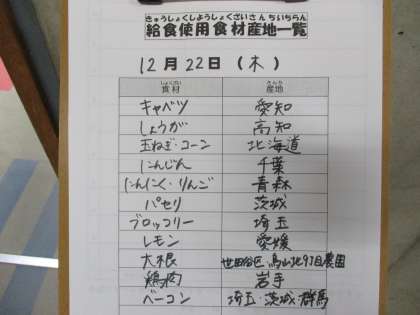 きゅうしょくしようしょくざいさんちいちらん
給食使用食材産地一覧
12月22日(木)
しょくざい さんち
食材 産地
キャベツ 愛知
しょうが 高知
玉ねぎ・コーン 北海道
にんじん 千葉
にんにく・りんご 青森
パセリ 茨城
ブロッコリー 埼玉
レモン 愛媛
大根 世田谷区 烏山北9丁目農園
鶏肉 岩手
ベーコン 埼玉・茨城・群馬